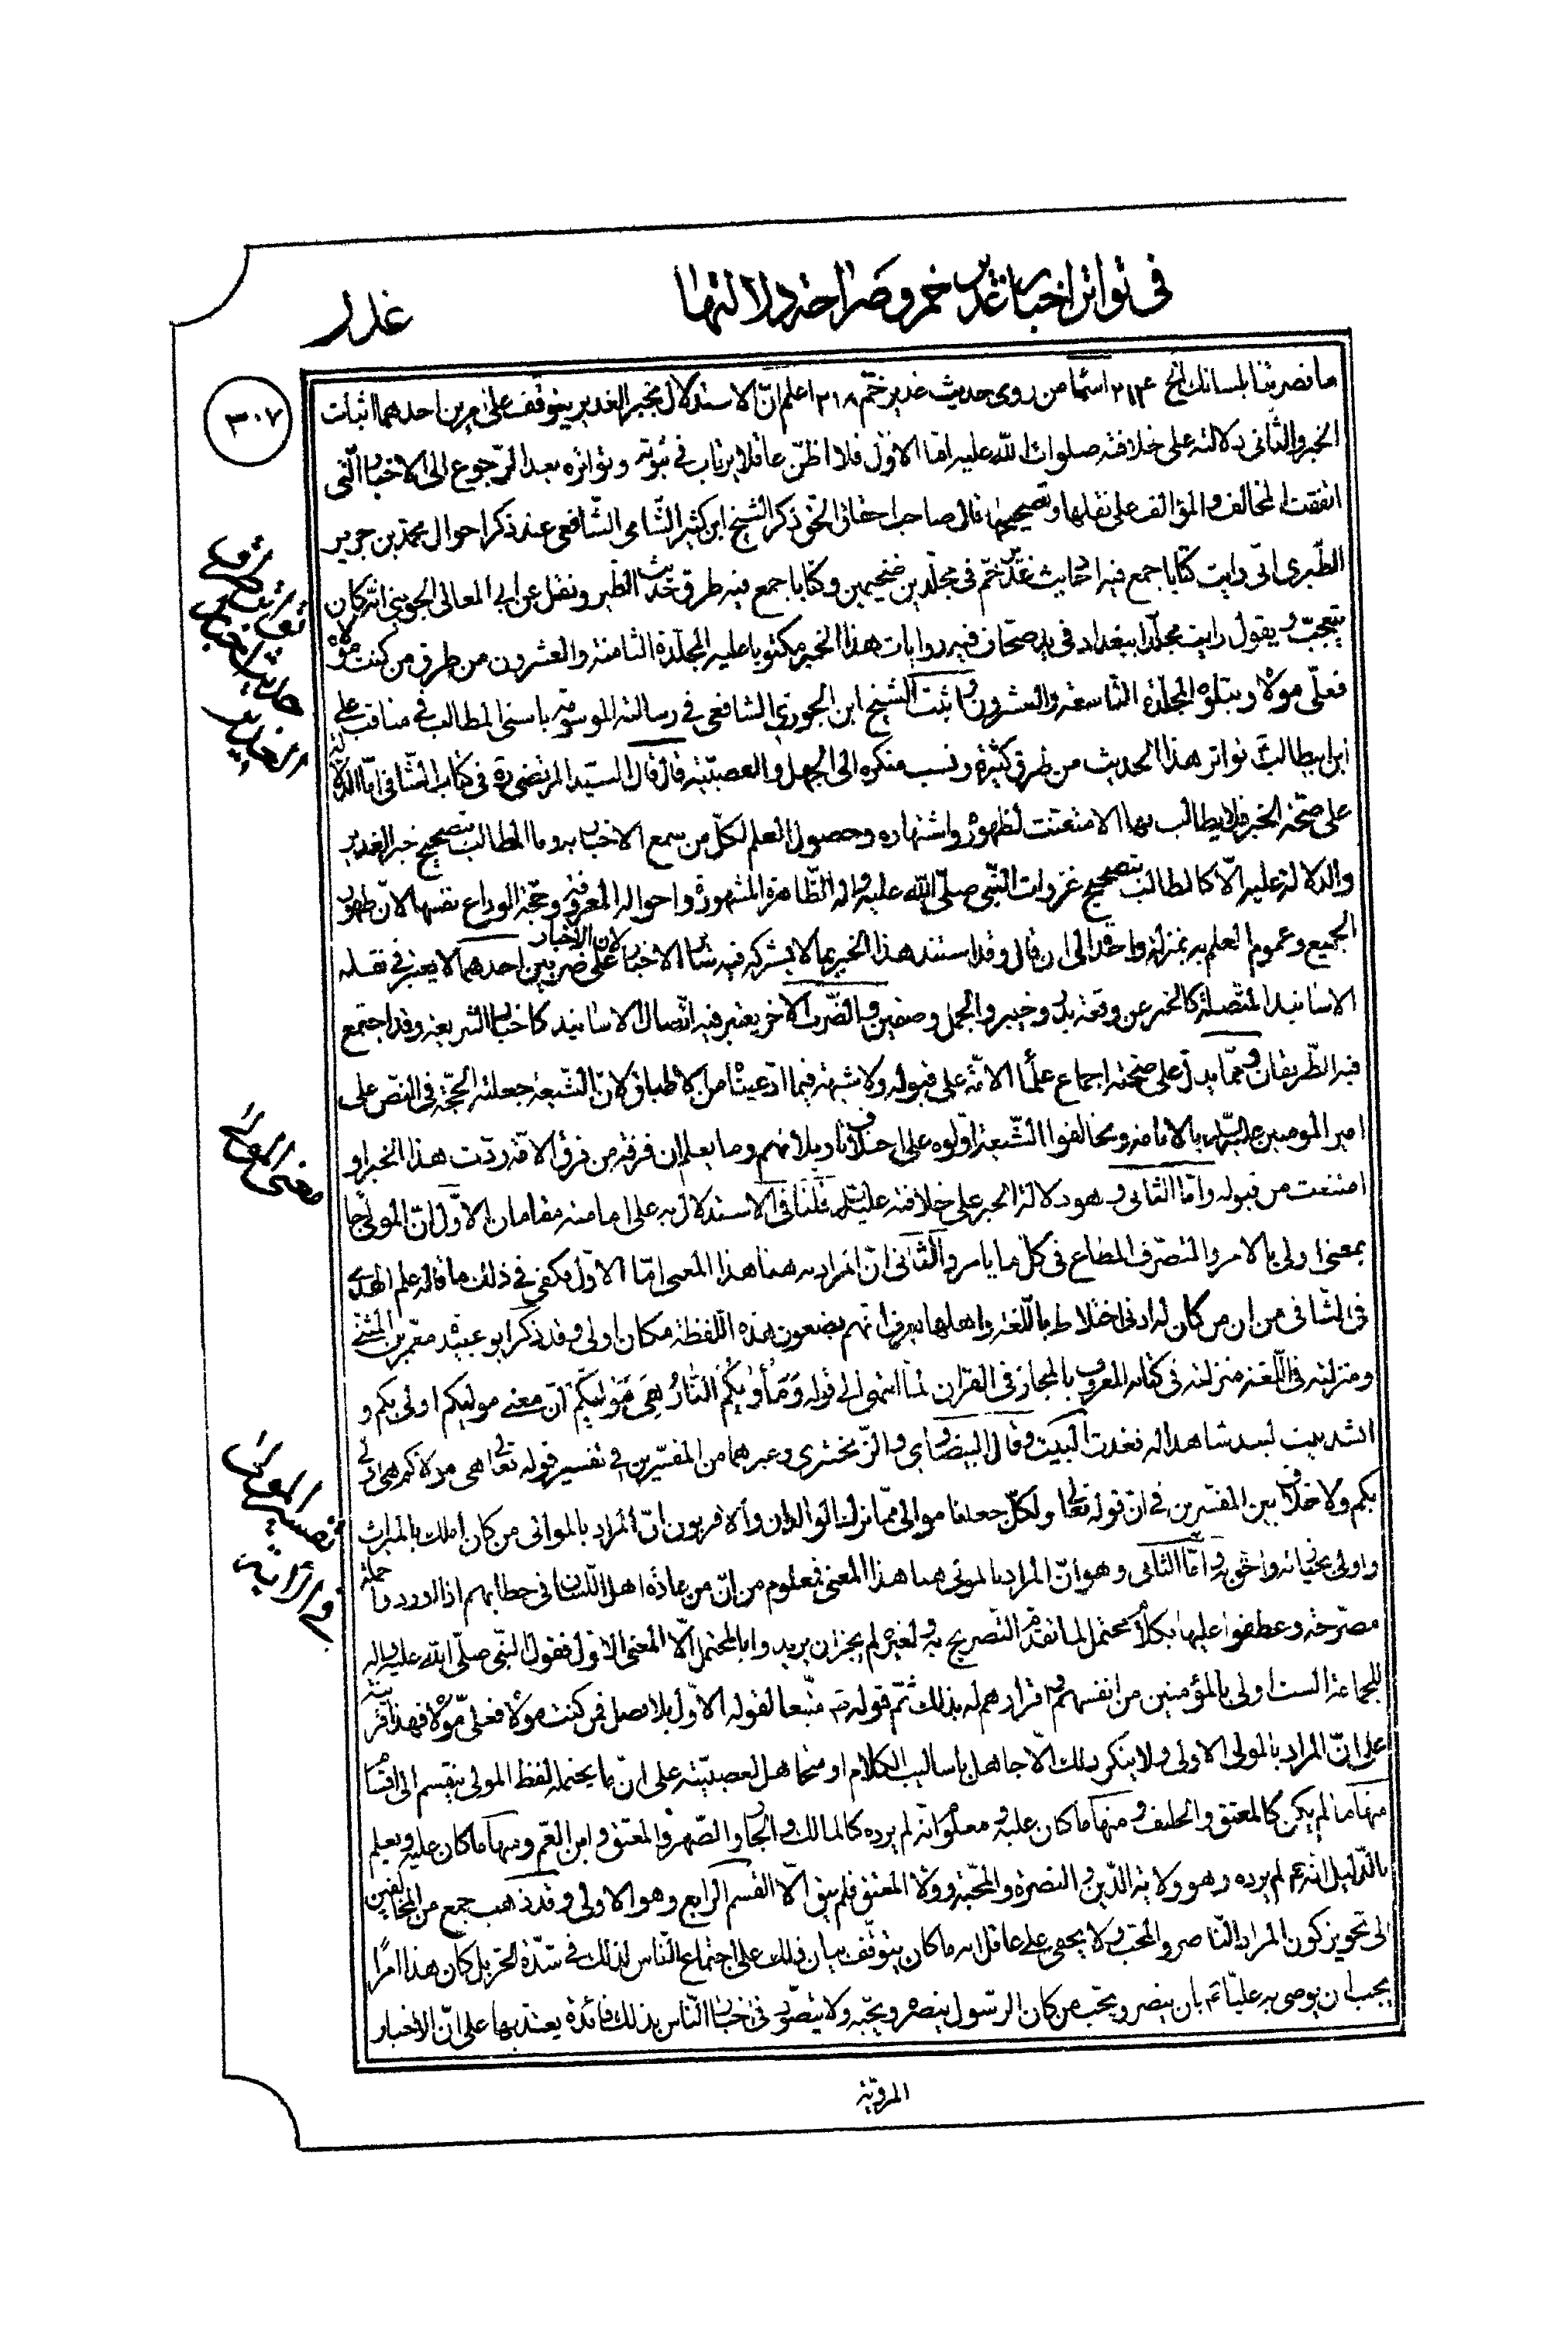 في تواتر اخبار غدير خم وصراحة دلالتها
غدر
٣٠٧
ما نصرتنا بلسانك الخ ٢١٣ اسماء من روى حديث غدير خمّ ٢١٨ اعلم انّ الاستدلال بخبر الغدير يتوقف على امرين احدهما اثبات
الخبر والثاني دلالته على خلافته صلوات اللّه عليه امّا الاوّل فلا اظنّ عاقلا يرتاب في ثبوته وتواتره بعد الرّجوع الى الاخبار الّتي
اتفقت المخالف والمؤالف على نقلها وتصحيحها قال صاحب احقاق الحق ذكر الشيخ ابن كثير الشّامي الشّافعي عند ذكر احوال محمّد بن جرير
الطّبري انّي رايت كتابا جمع فيه احاديث غدير خمّ في مجلّدين ضخيمين وكتابا جمع فيه طرق حديث الطّير ونقل عن ابي المعالي الجويني انّه كان
يتعجّب ويقول رايت مجلّدا ببغداد في يد صحّاف فيه روايات هذا الخبر مكتوبا عليه المجلّدة الثامنة والعشرون من طرق من كنت مولاه
فعليّ مولاه ويتلوه المجلّدة التاسعة والعشرون واثبت الشيخ ابن الجوزي الشافعي في رسالته الموسومة باسنى المطالب في مناقب علي
ابن ابيطالبؑ تواتر هذا الحديث من طرق كثيرة ونسب منكره الى الجهل والعصبيّة قال قال السيّد المرتضى ره في كتاب الشافي امّا الدلالة
على صحّة الخبر فلا يطالب بها الا متعنّت لظهوره واشتهاره وحصول العلم لكلّ من سمع الاخبار به وما المطالب بتصحيح خبر الغدير
والدلالة عليه الّا كالمطالب بتصحيح غزوات النّبي صلّى الله عليه واله الظّاهرة المشهورة واحواله المعروفة وحجّة الوداع نفسها لانّ ظهور
الجميع وعموم العلم به بمنزلة واحدة الى ان قال وقد استند هذا الخبر بما لا يشركه فيه سائر الاخبار لان الاخبار على ضربين احدهما لا يعتبر في نقله
الاسانيد المتّصلة كالخبر عن وقعة بدر وخيبر والجمل وصفين والضّرب الآخر يعتبر فيه اتّصال الاسانيد كاخبار الشريعة وقد اجتمع
فيه الطّريقان وممّا يدلّ على صحّته اجماع علماء الامّة على قبوله ولا شبهة فيما ادّعيناه من الاطباق لانّ الشّيعة جعلته الحجّة في النصّ على
امير المومنين عليه السّلام بالامامة ومخالفوا الشّيعة اوّلوه على اختلاف تاويلاتهم وما يعلم ان فرقة من فرق الامّة ردّت هذا الخبر او
امتنعت من قبوله وامّا الثاني وهو دلالة الخبر على خلافته عليه السّلام فلنا في الاستدلال به على امامته مقامان الاوّل انّ المولى جاء
بمعنى اولى بالامر والمتصرّف المطاع في كلّ ما يامر والثّاني انّ المراد به هنا هذا المعنى امّا الاوّل فيكفي في ذلك ما قاله علم الهدى
في الشّافي من ان من كان له ادنى اختلاط باللّغة واهلها يعرف انّهم يضعون هذه اللّفظة مكان اولى وقد ذكر ابو عبيدة معمّر بن المثنّى
ومنزلته في اللّغة منزلته في كتابه المعروف بالمجاز في القرآن لمّا انتهى الى قوله وَمَأْوٰيكُمُ النّارُ هِيَ مَوْلَيكُمْ انّ معنى موليكم اولى بكم و
انشد بيت لبيد شاهدا له فغدت البيت وقال البيضاوي والزّمخشري وغيرهما من المفسّرين في تفسير قوله تعالى هي مولاكم هي اولى
بكم ولا خلاف بين المفسّرين في انّ قوله تعالى ولكلّ جعلنا موالي ممّا ترك الوالدان والاقربون انّ المراد بالموالي من كان املك بالميراث
واولى بحيازته واحقّ به وامّا الثاني وهو انّ المراد بالمولى هنا هذا المعنى فمعلوم من انّ من عادة اهل اللّسان في خطابهم اذا اوردوا جملة
مصرّحة وعطفوا عليها بكلام محتمل لما تقدّم التّصريح به ولغيره لم يجز ان يريدوا بالمحتمل الّا المعنى الاوّل فقول النّبي صلّى الله عليه واله
للجماعة الست اولى بالمؤمنين من انفسهم واقرارهم له بذلك ثمّ قوله ص متّبعا لقوله الاوّل بلا فصل فمن كنت مولاه فعليّ مولاه فهذا قرينة
على انّ المراد بالمولى الاولى ولا ينكر ذلك الّا جاهل باساليب الكلام او متجاهل لعصبيّته على ان ما يحتمله لفظ المولى ينقسم الى اقسام
منها ما لم يكن كالمعتق والحليف ومنها ما كان عليه ومعلوم انّه لم يرده كالمالك والجار والصّهر والمعتق وابن العّم ومنها ما كان عليه ويعلم
بالدّليل انّه عم لم يرده وهو ولاية الدّين والنصرة والمحّبة وولاء المعتق فلم يبق الّا القسم الرابع وهو الاولى وقد ذهب جمع من المخالفين
الى تجويز كون المراد النّاصر والمحّب ولا يخفى على عاقل انه ما كان يتوقّف بيان ذلك على اجتماع النّاس لذلك في شدّة الحرّ بل كان هذا امرًا
يجب ان يوصي به عليّا عم بان ينصر ويحّب من كان الرسول ينصره ويحّبه ولا يتصّور في اخبار النّاس بذلك فائدة يعتدّ بها على انّ الاخبار
المرويّة
حديث الغدير
معنى المولى
تفسير المولى
في الآية